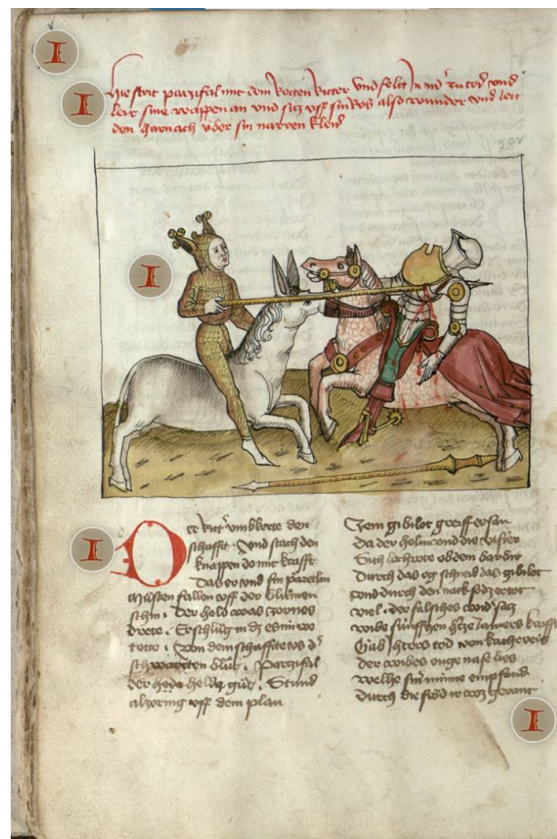 I
I Hie strit parzifal mit dem Rotten Ritter vnd felt in zu tod vnd
leit sine wappen an vnd saz vff sin Ros also wunder vnd leit
den harnach vber sin narren kleid
28v
I
I Der Ritt' vmbkerte den
schafft · Vnd stach den
knappen do mit krafft
Daz er vnd sin
Musten fallen vff der blumen
schin · Der held waz zornes
drete · Er schlug in dz es im we
tette · Von dem schaffte d'
schwartten blut · Parzifal
der held gut · Stund
alzornig vff dem plan
Zem gibilot greiff er san
Da der helm vnd die visier
Sich lochote ob dem barbir
Durch das og schneid das gibilot
vnd durch den nack so dz er tot
viel · der falsches wid' satz
wibe sunffczen h'cze iamers
Gab Ithers tod von
Der wibes ouge nase lies
welhe sin' minne empfand
Durch die froid ir waz gerant
I